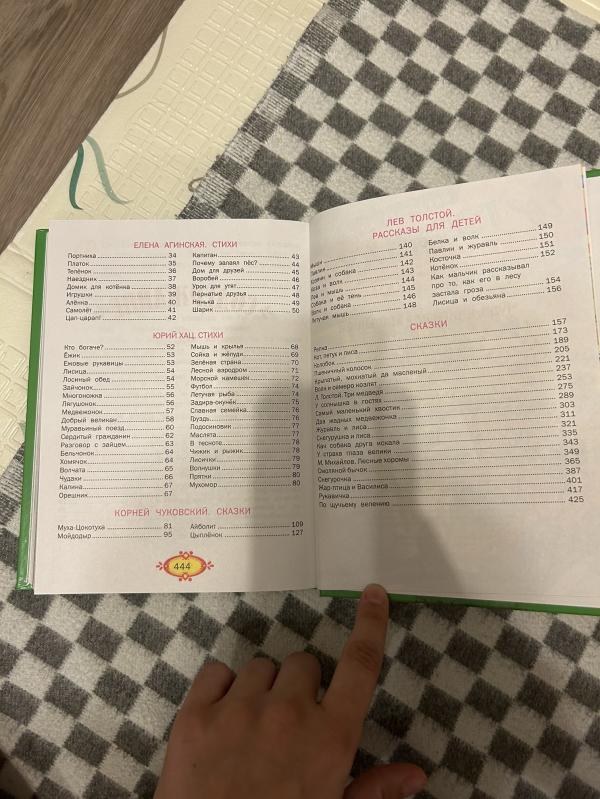 ЕЛЕНА АГИНСКАЯ. СТИХИ
Портниха 34
Платок 35
Телёнок 36
Наездник 37
Домик для котёнка 38
Игрушки 39
Алёнка 40
Самолёт 41
Цап-царап! 42
Капитан 43
Почему залаял пёс? 44
Дом для друзей 45
Воробей 46
Урок для утят 47
Пернатые друзья 48
Нянька 49
Шарик 50
ЮРИЙ ХАЦ. СТИХИ
Кто богаче? 52
Ёжик 53
Ежовые рукавицы 53
Лисица 54
Лосиный обед 54
Зайчонок 55
Многоножка 56
Лягушонок 56
Медвежонок 57
Добрый великан 58
Муравьиный поезд 60
Сердитый гражданин 62
Разговор с зайцем 63
Бельчонок 64
Хомячок 64
Волчата 65
Чудаки 66
Калина 67
Орешник 67
Мышь и крылья 68
Сойка и жёлуди 69
Зелёная страна 70
Лесной аэродром 71
Морской камешек 72
Футбол 74
Летучая рыба 74
Задира-окунёк 75
Славная семейка 76
Груздь 76
Подосиновик 77
Маслята 77
В тесноте 78
Чижик и рыжик 78
Лисички 79
Волнушки 79
Прятки 80
Мухомор 80
КОРНЕЙ ЧУКОВСКИЙ. СКАЗКИ
Муха-Цокотуха 81
Мойдодыр 95
Айболит 109
Цыплёнок 127
444
ЛЕВ ТОЛСТОЙ.
РАССКАЗЫ ДЛЯ ДЕТЕЙ
140
141
и собака 142
143
Лев и мышь 144
Собака и её тень 145
Волк и собака 146
Летучая мышь 148
Белка и волк 149
Павлин и журавль 150
Косточка 151
Котёнок 152
Как мальчик рассказывал
про то, как его в лесу
застала гроза 154
Лисица и обезьяна 156
СКАЗКИ
Репка 157
Кот, петух и лиса 173
Колобок 189
Пшеничный колосок 205
Крылатый, мохнатый да масленый 221
Волк и семеро козлят 237
Л. Толстой. Три медведя 253
У солнышка в гостях 275
Самый маленький хвостик 289
Два жадных медвежонка 303
Журавль и лиса 311
Снегурушка и лиса 321
Как собака друга искала 335
У страха глаза велики 343
М. Михайлов. Лесные хоромы 349
Смоляной бычок 365
Снегурочка 387
Жар-птица и Василиса 401
Рукавичка 417
По щучьему велению 425